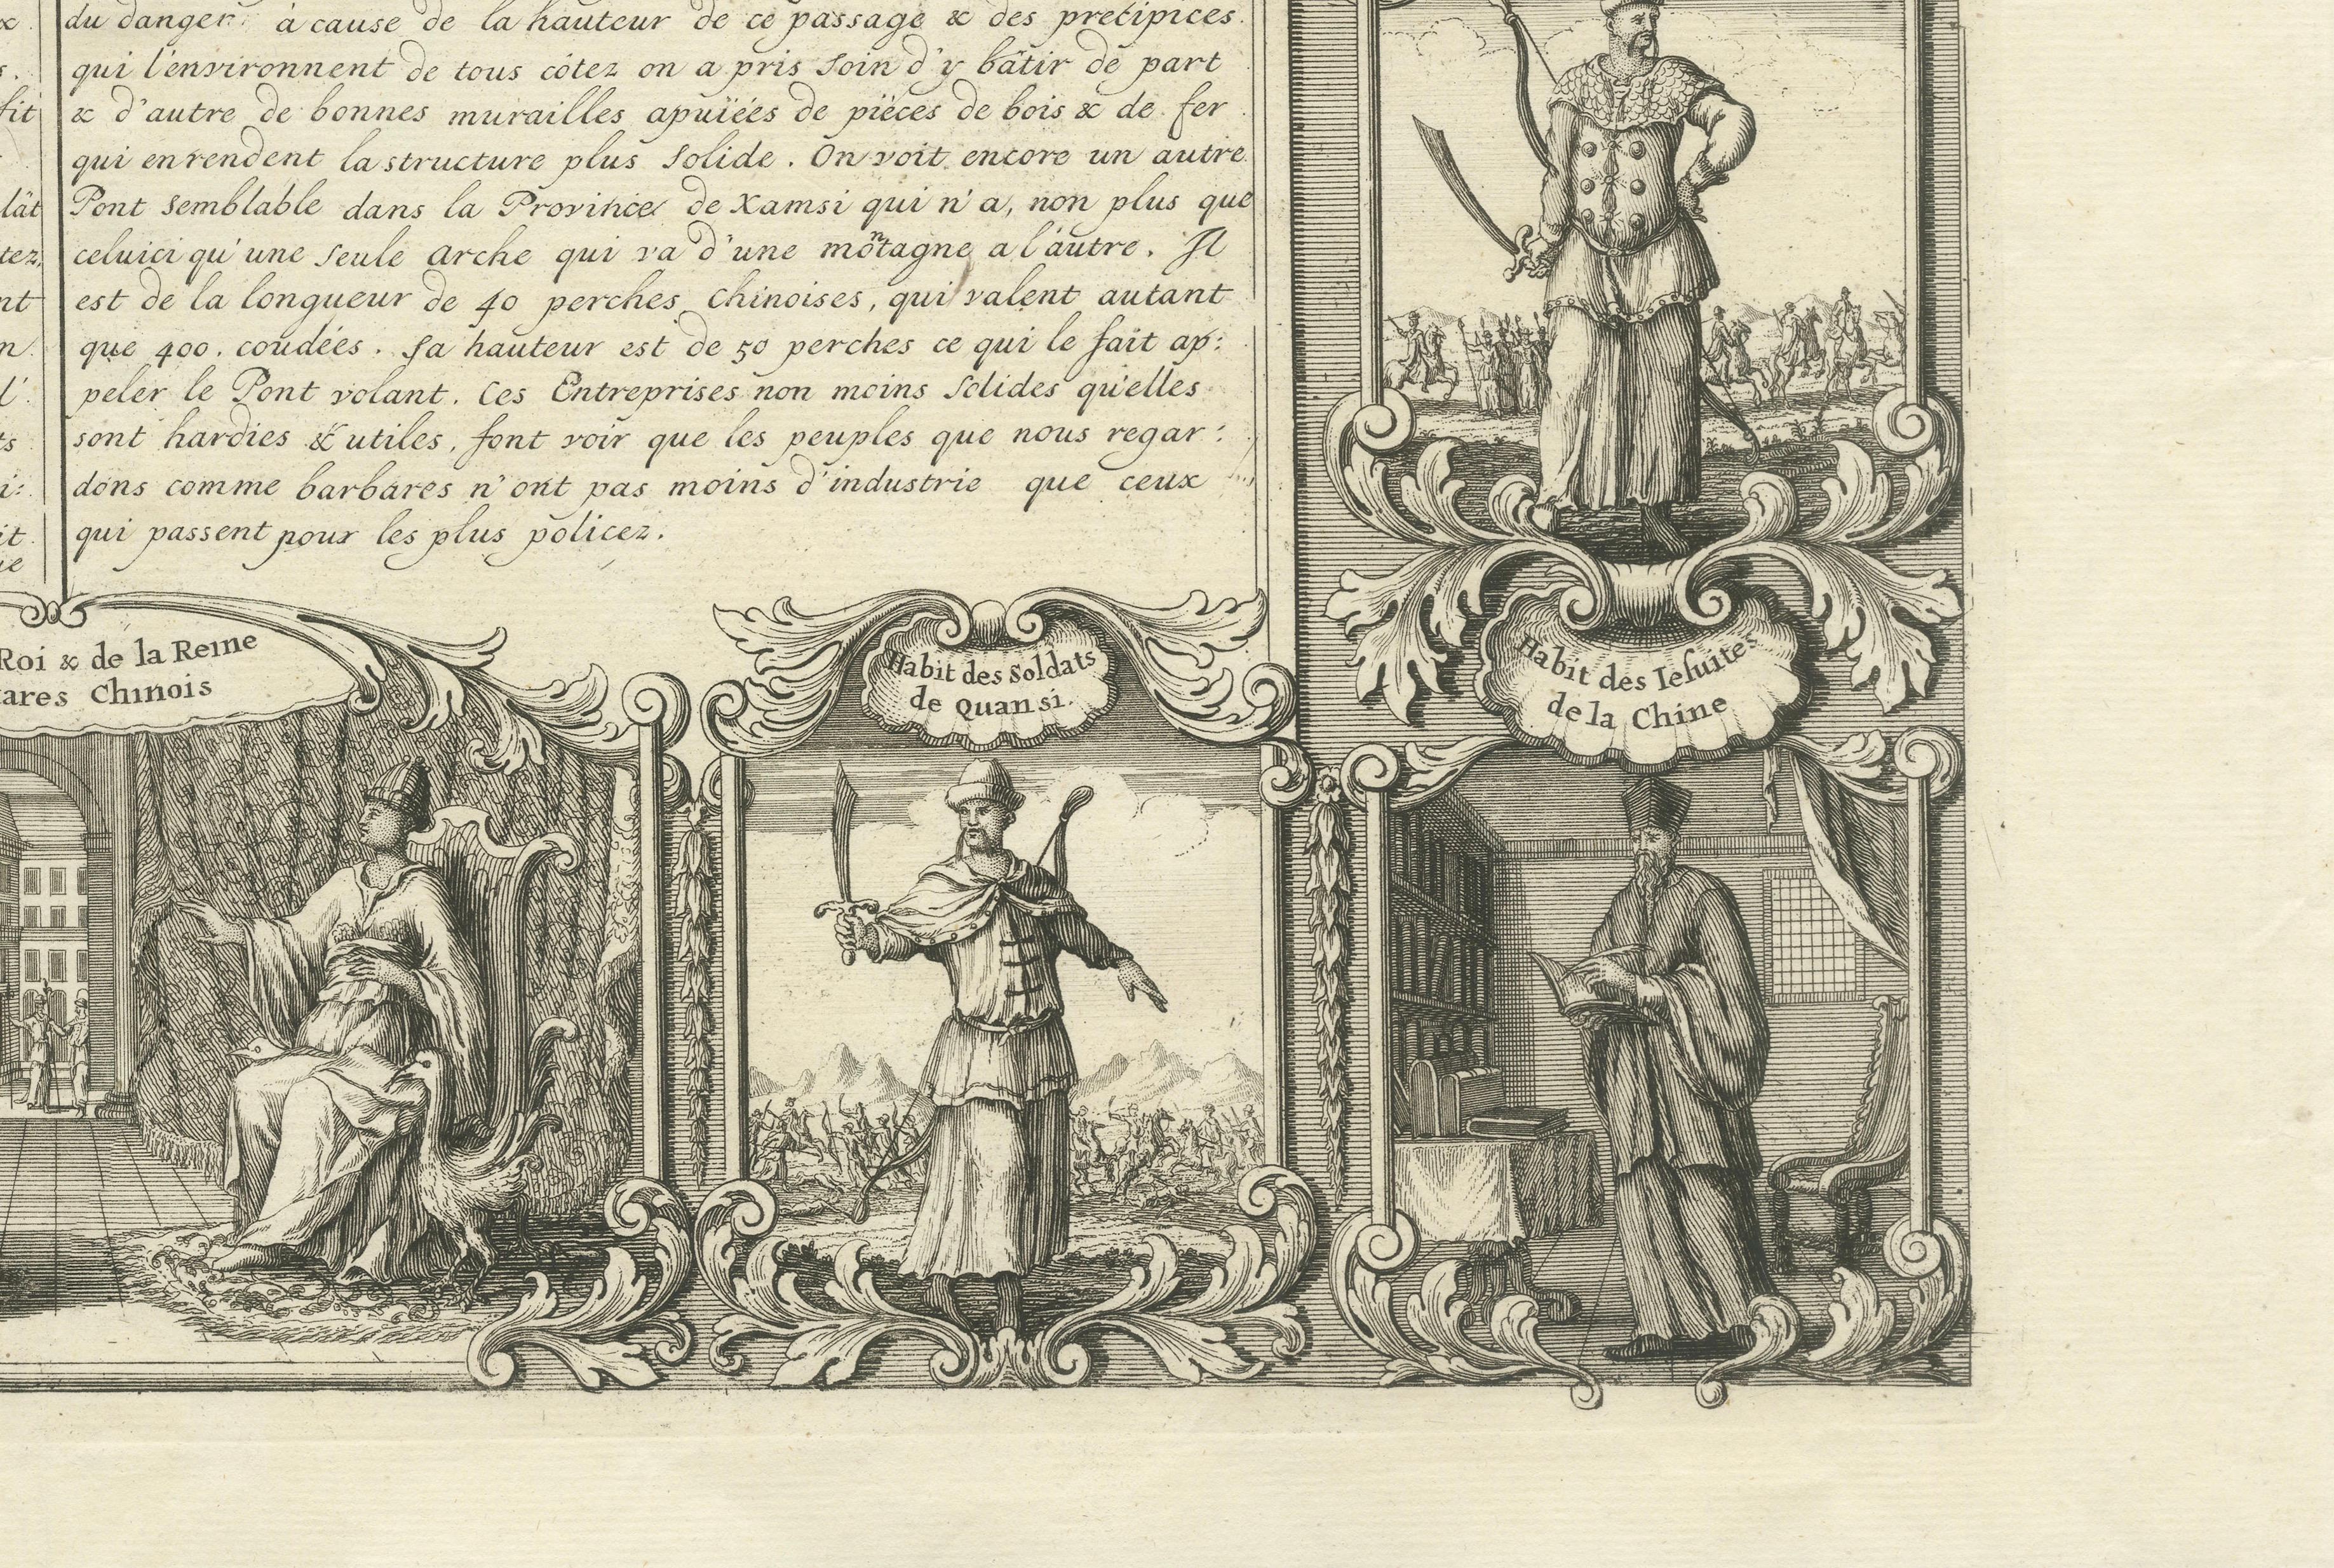 du danger à cause de la hauteur de ce passage & des precipices
qui l'environnent de tous côtez on a pris soin d'y bâtir de part
& d'autre de bonnes murailles apuïées de pièces de bois & de fer
qui en rendent la structure plus solide. On voit encore un autre
Pont semblable dans la Province de Xamsi qui n'a, non plus que
celuici qu'une seule arche qui va d'une mõtagne a l'autre. Il
est de la longueur de 40 perches Chinoises, qui valent autant
que 400. coudées. sa hauteur est de 50 perches ce qui le fait ap:
peler le Pont volant. Ces Entreprises non moins solides qu'elles
sont hardies & utiles, font voir que les peuples que nous regar:
dons comme barbares n'ont pas moins d'industrie que ceux
qui passent pour les plus policez.
Roi & de la Reine
tares Chinois
Habit des Soldats
de Quansi.
Habit des Iesuites
de la Chine